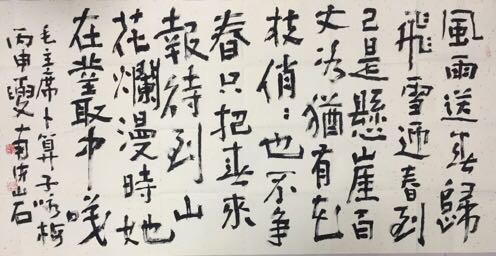 風雨送春歸
飛雪迎春到
已是懸崖百
丈冰猶有花
枝俏〻也不爭
春只把春來
報待到山
花爛漫時她
在叢中咲
毛主席卜算子咏梅
丙申夏南山石